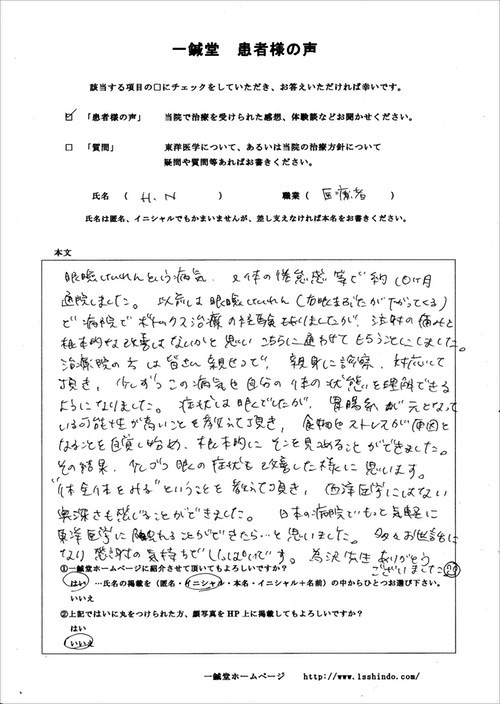 一鍼堂 患者様の声
該当する項目の□にチェックをしていただき、お答えいただければ幸いです。
☑ 「患者様の声」 当院で治療を受けられた感想、体験談などお聞かせください。
□ 「質問」 東洋医学について、あるいは当院の治療方針について
疑問や質問等あればお書きください。
氏名 ( H.N ) 職業 ( 医療者 )
氏名は匿名、イニシャルでもかまいませんが、差し支えなければ本名をお書きください。
本文
眼瞼けいれんという病気、又体の倦怠感等で約10ヶ月
通院しました。以前は眼瞼けいれん(右眼まぶたが下がってくる)
で病院でボトックス治療の経験もありましたが、注射の痛みと
根本的な改善はないかと思いこちらに通わせてもらうことにしました。
治療院の方は皆さん親切で、親身に診察、対応して
頂き、少しずつこの病気を自分の体の状態を理解できる
ようになりました。症状は眼でしたが、胃腸系が元となって
いる可能性が高いことを教えて頂き、食物とストレスが原因と
なることを自覚し始め、根本的にそこを見つめることができました。
その結果、少しづつ眼の症状も改善した様に思います。
"体全体をみる"ということを教えて頂き、西洋医学にはない
奥深さも感じることができました。日本の病院でもっと気軽に
東洋医学に触れることができたら…と思いました。多々お世話に
なり感謝の気持ちでいっぱいです。為沢先生ありがとう
ございました
①一鍼堂ホームページに紹介させて頂いてもよろしいですか?
はい …氏名の掲載を(匿名・イニシャル・本名・イニシャル+名前)の中からひとつお選び下さい。
いいえ
②上記ではいに丸をつけられた方、顔写真をHP上に掲載してもよろしいですか?
はい
いいえ
一鍼堂ホームページ http://www.1sshindo.com/